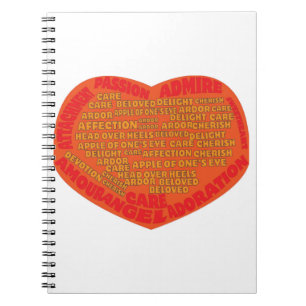 PASSION
ADMIRE
CARE
CARE BELOVED DELIGHT CHERISH
ARDOR APPLE OF ONE'S EYE ARDOR CARE
AFFECTION ARDOR DELIGHT CARE
ARDOR ARDOR CHERISH
HEAD OVER HEELS BELOVED DELIGHT
APPLE OF ONE'S EYE CARE CHERISH
DELIGHT CARE AFFECTION CHERISH
ARDOR APPLE OF ONE'S EYE
CARE
DEVOTION CHERISH HEAD OVER HEELS
CHERISH ARDOR BELOVED
CARE
ANGEL
ADORATION